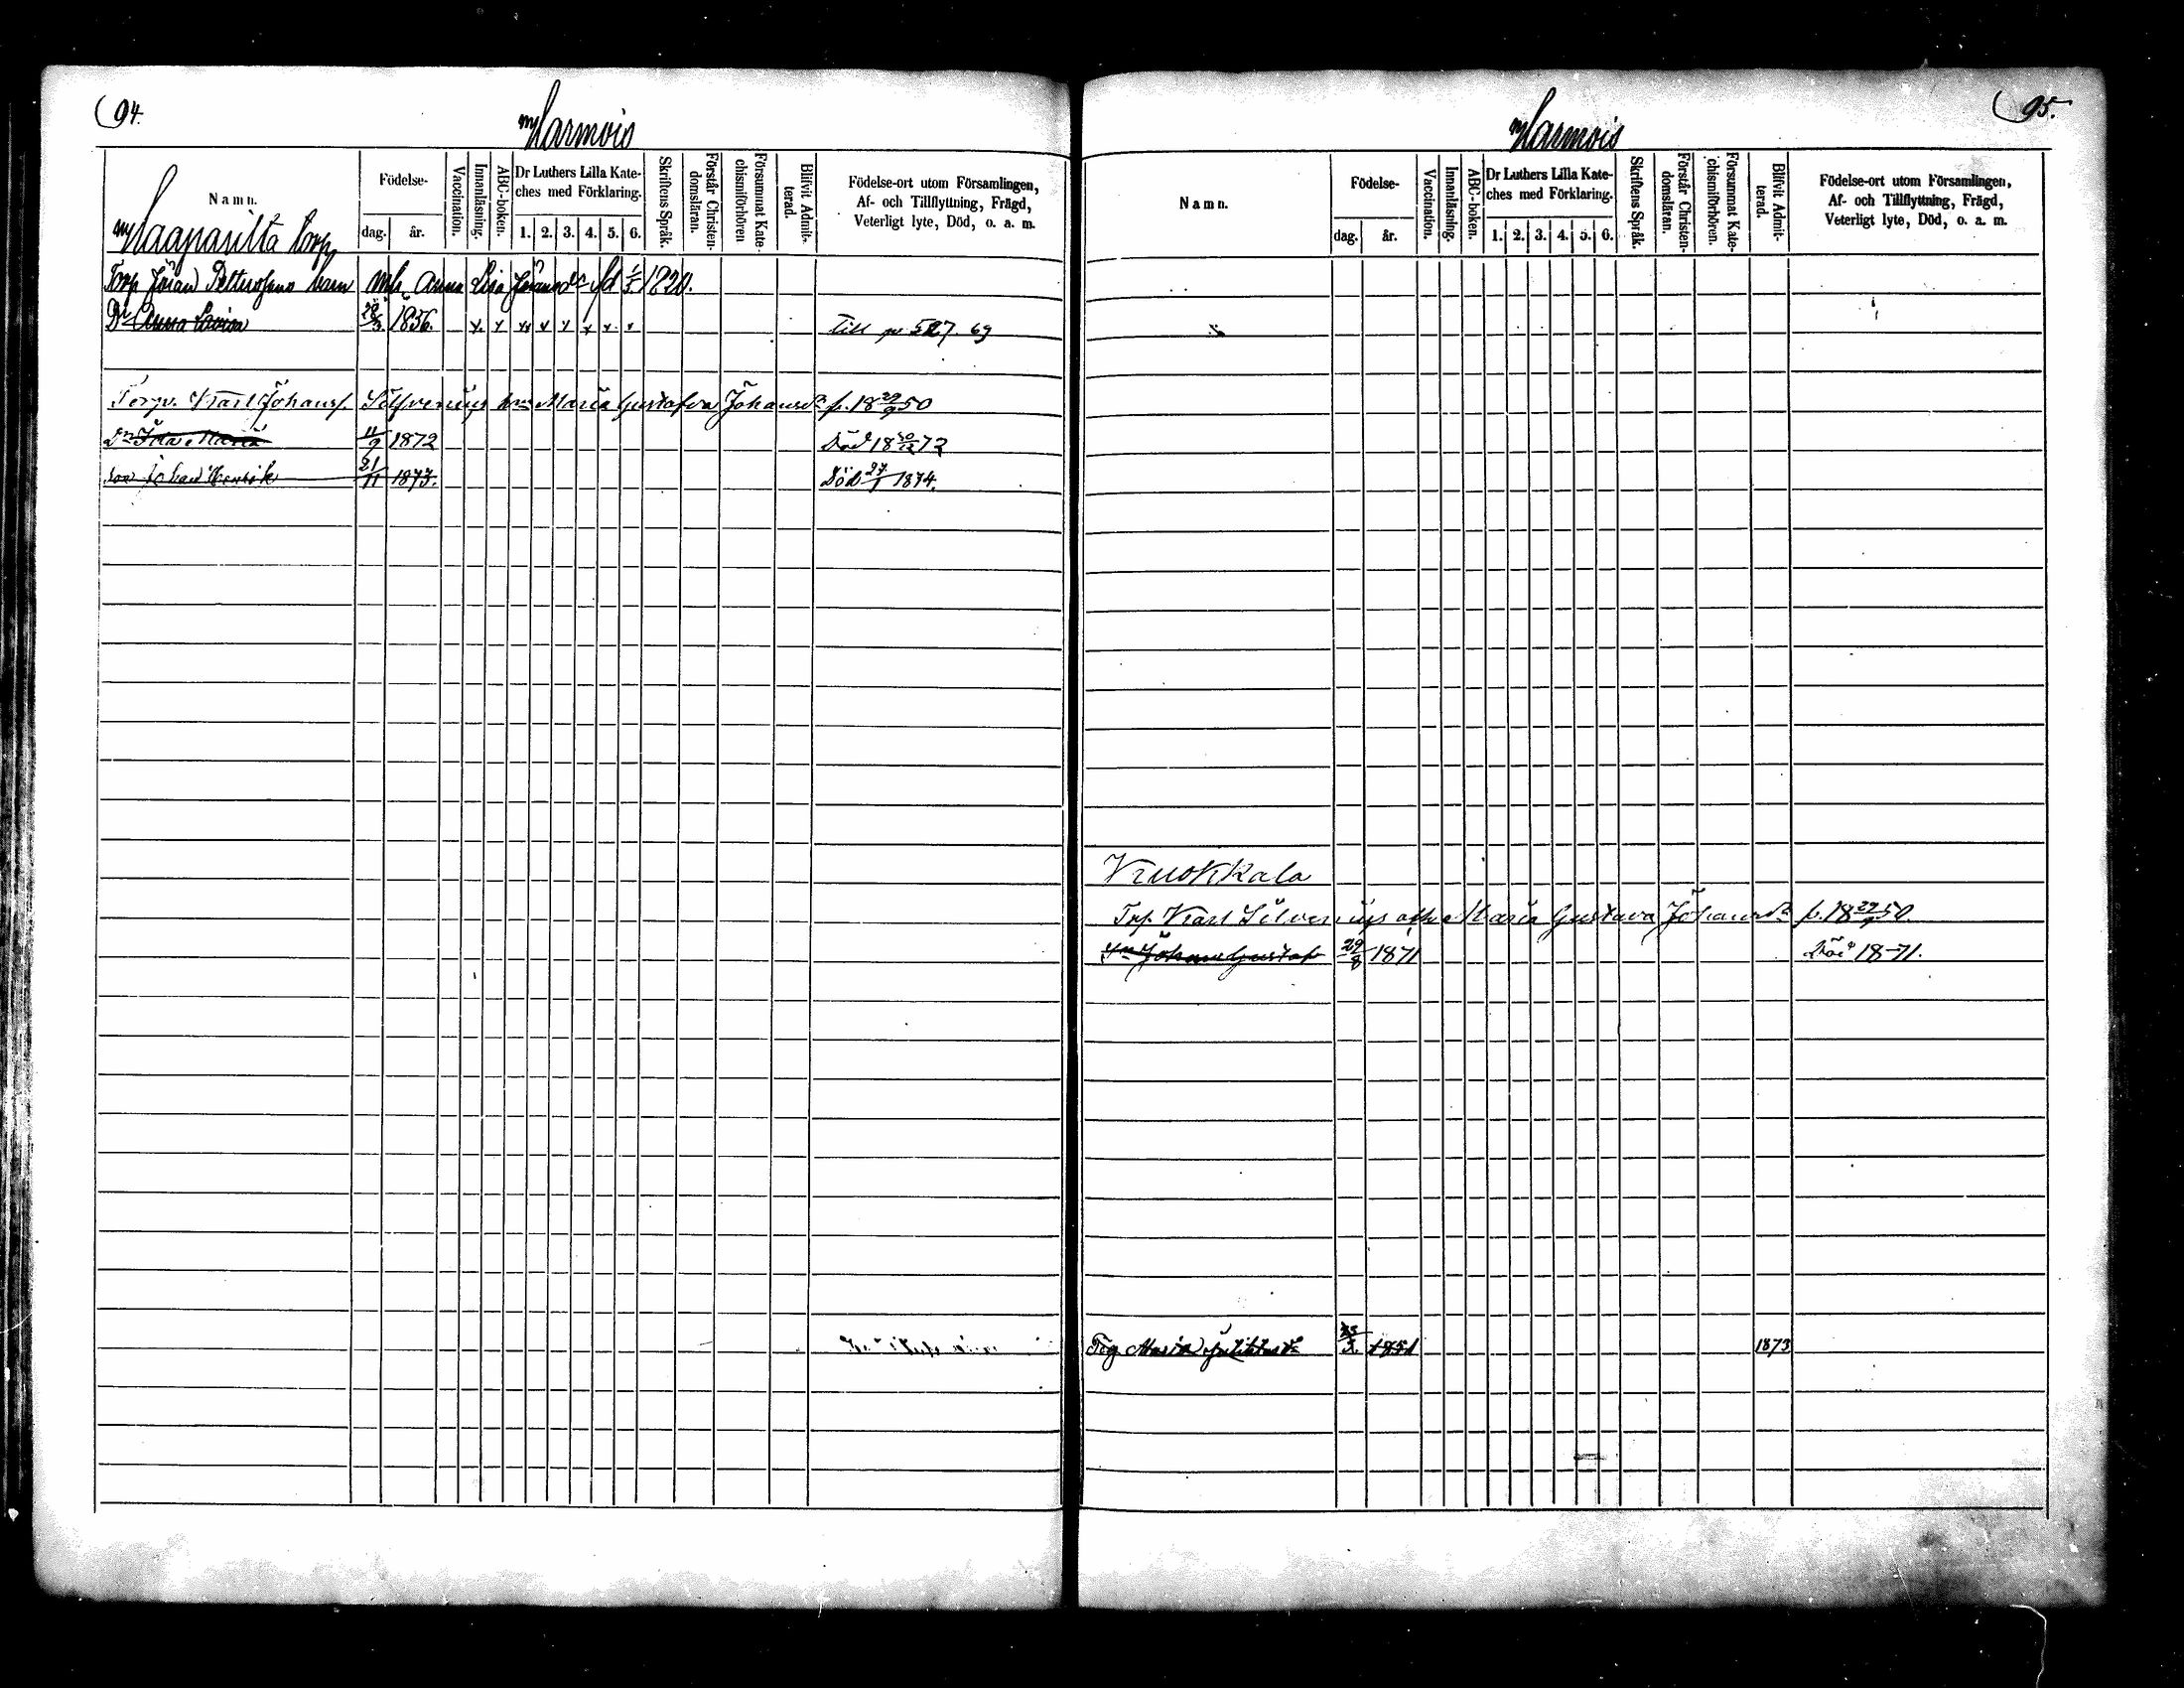 94.
Harmois
Namn.
Födelse-
dag.
år.
Vaccination.
Innanläsning.
ABC-boken.
Dr Luthers Lilla Kate-
ches med Förklaring.
1. 2. 3. 4. 5. 6.
Skriftens Språk.
Förstår Christen-
domsläran.
Försummat Kate-
chismiförhören
Blifvit Admit-
terad.
Födelse-ort utom Församlingen,
Af- och Tillflyttning, Frägd,
Veterligt lyte, Död, o. a. m.
Haapasilta torp
Torp Jöran Pettersons barn mh Anna Lisa Göransdr fd 1/5 1820.
Dr Anna Lovisa 28/3 1856. x x x x x x x x Till p 527. 69
Torp. Karl Johanss. Silfvenius hu Maria Gustafva Johansdr f. 18 29/9 50
Dr Ida Maria 11/9 1872 Död 18 30/12 72
son Johan Henrik 21/11 1873. Död 27/1 1874.
95.
Harmois
Namn.
Födelse-
dag.
år.
Vaccination.
Innanläsning.
ABC-boken.
Dr Luthers Lilla Kate-
ches med Förklaring.
1. 2. 3. 4. 5. 6.
Skriftens Språk.
Förstår Christen-
domsläran.
Försummat Kate-
chismiförhören.
Blifvit Admit-
terad.
Födelse-ort utom Församlingen,
Af- och Tillflyttning, Frägd,
Veterligt lyte, Död, o. a. m.
Kuokkala
Trp. Karl Silvenius och Maria Gustava Johansdr f. 18 29/9 50.
Sn Johan Gustaf 29/8 1871 Död 18-71.
Maria 25/3. 1851 1873